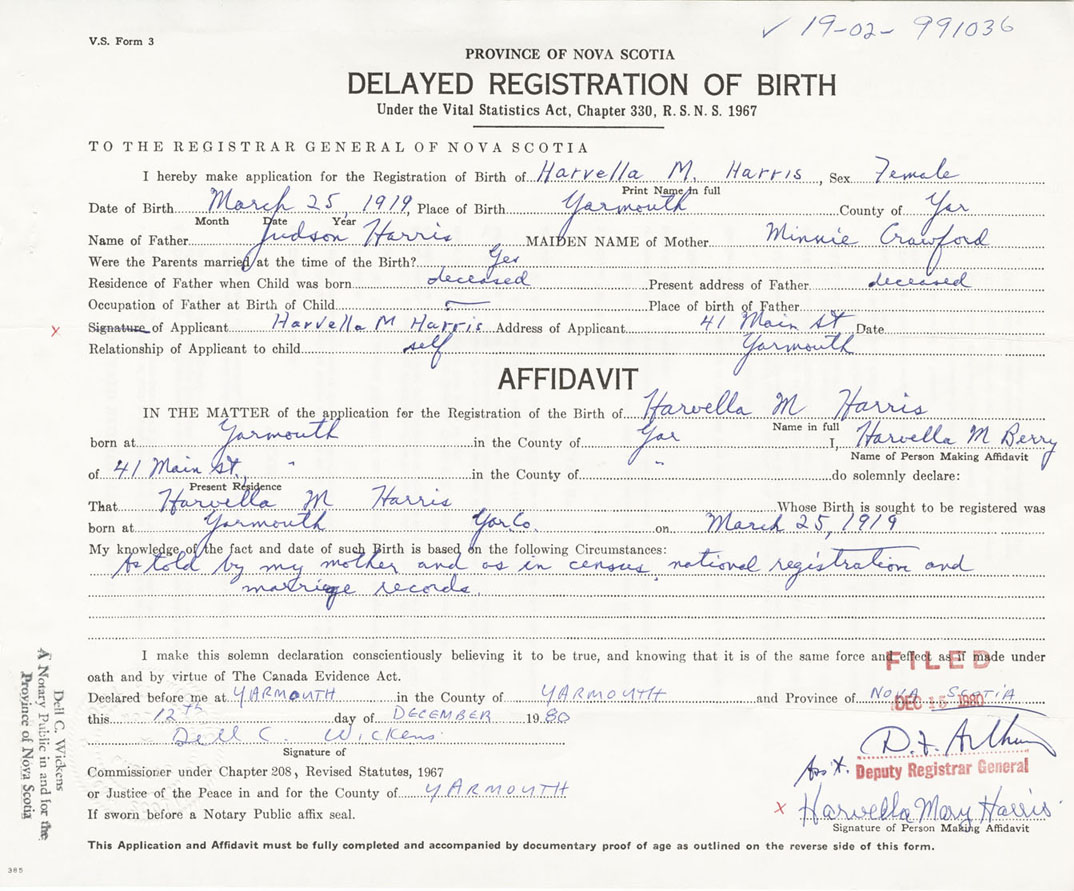 ✓ 19-02-991036
V.S. Form 3
PROVINCE OF NOVA SCOTIA
DELAYED REGISTRATION OF BIRTH
Under the Vital Statistics Act, Chapter 330, R.S.N.S. 1967
TO THE REGISTRAR GENERAL OF NOVA SCOTIA
I hereby make application for the Registration of Birth of Harvella M. Harris, Sex Female
Print Name in full
Date of Birth March 25, 1919, Place of Birth Yarmouth County of Yar
Month Date Year
Name of Father Judson Harris MAIDEN NAME of Mother Minnie Crawford
Were the Parents married at the time of the Birth? Yes
Residence of Father when Child was born deceased Present address of Father deceased
Occupation of Father at Birth of Child — Place of birth of Father
x Signature of Applicant Harvella M Harris Address of Applicant 41 Main St Date
Relationship of Applicant to child self Yarmouth
AFFIDAVIT
IN THE MATTER of the application for the Registration of the Birth of Harvella M Harris
Name in full
born at Yarmouth in the County of Yar I, Harvella M Berry
Name of Person Making Affidavit
of 41 Main St. " in the County of " do solemnly declare:
Present Residence
That Harvella M Harris Whose Birth is sought to be registered was
born at Yarmouth Yar Co. on March 25, 1919
My knowledge of the fact and date of such Birth is based on the following Circumstances:
As told by my mother and as in census, national registration and
marriage records.
I make this solemn declaration conscientiously believing it to be true, and knowing that it is of the same force and effect as if made under
oath and by virtue of The Canada Evidence Act.
FILED
Declared before me at YARMOUTH in the County of YARMOUTH and Province of NOVA SCOTIA
DEC 15 1980
this 12th day of DECEMBER 1980
Dell C. Wickens
Signature of
D. F. Arthur
Commissioner under Chapter 208, Revised Statutes, 1967
Ass't. Deputy Registrar General
or Justice of the Peace in and for the County of YARMOUTH
x Harvella Mary Harris
If sworn before a Notary Public affix seal.
Signature of Person Making Affidavit
This Application and Affidavit must be fully completed and accompanied by documentary proof of age as outlined on the reverse side of this form.
Dell C. Wickens
A Notary Public in and for the
Province of Nova Scotia
385